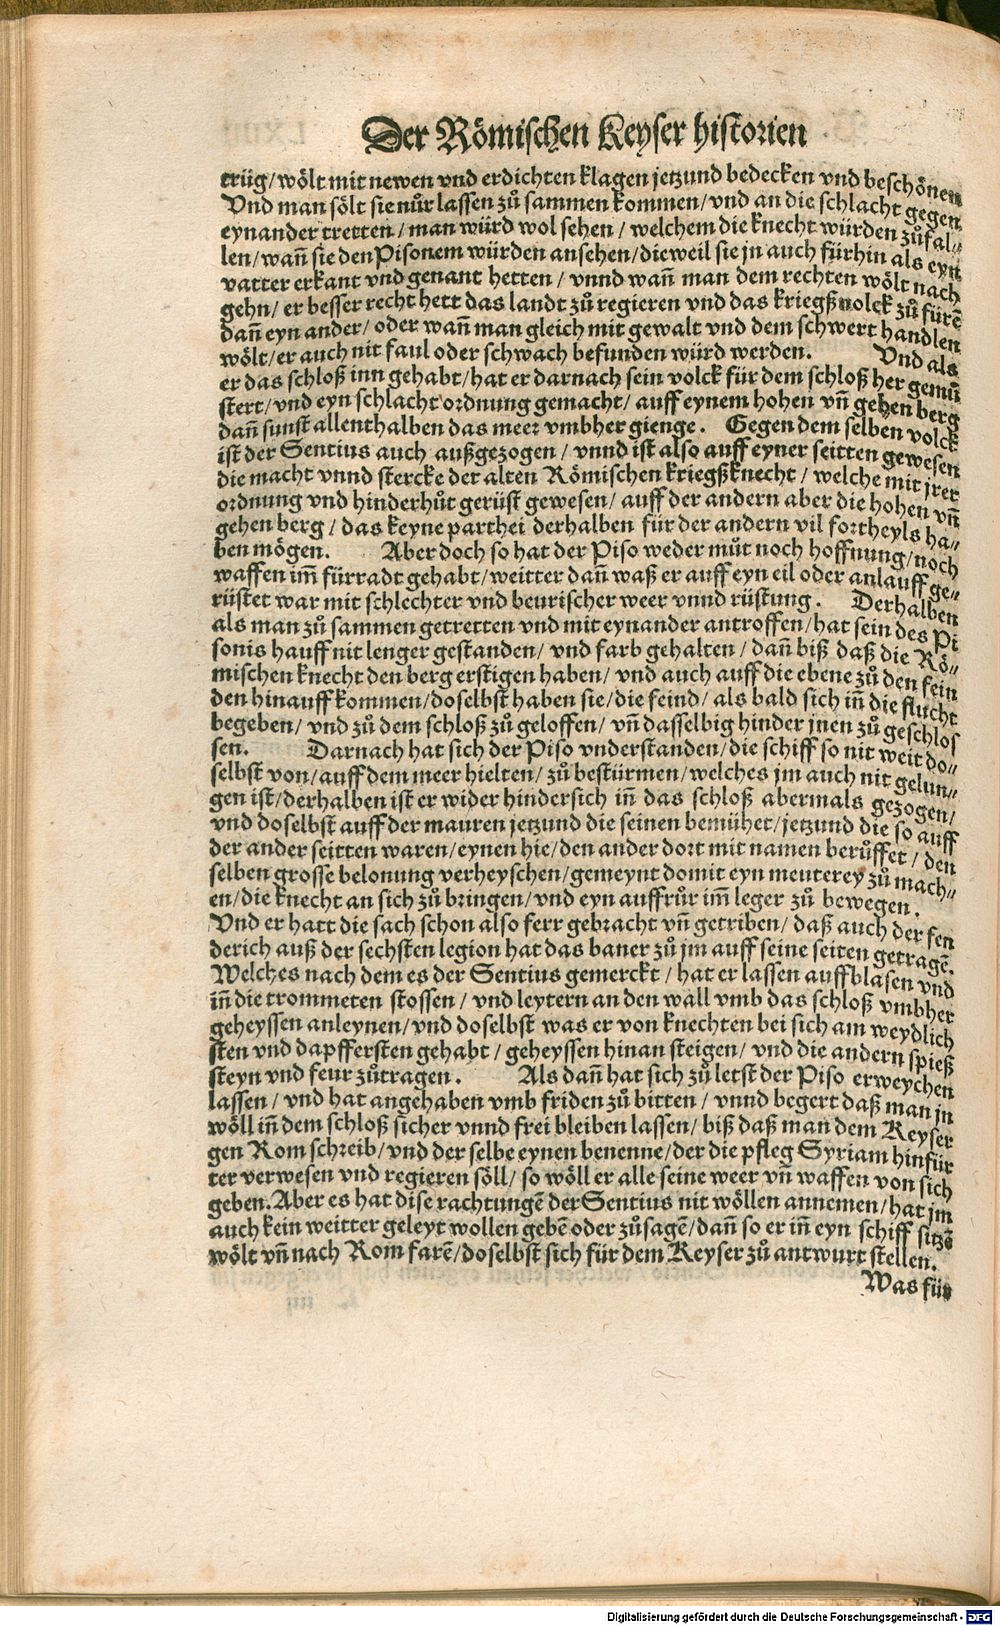 Der Römischen Keyser historien
trüg/wölt mit newen vnd erdichten klagen jetzund bedecken vnd beschönen
Vnd man sölt sie nůr lassen zů sammen kommen/vnd an die schlacht gegen
eynander tretten/man würd wol sehen/welchem die knecht würden zůfal⸗
len/wañ sie den Pisonem würden ansehen/dieweil sie jn auch fürhin als eyn
vatter erkant vnd genant hetten/vnnd wañ man dem rechten wölt nach
gehn/er besser recht hett das landt zů regieren vnd das kriegßuolck zů fürē
dañ eyn ander/oder wañ man gleich mit gewalt vnd dem schwert handlen
wölt/er auch nit faul oder schwach befunden würd werden. Vnd als
er das schloß inn gehabt/hat er darnach sein volck für dem schloß her gemů
stert/vnd eyn schlacht ordnung gemacht/auff eynem hohen vñ gehen berg
dañ sunst allenthalben das meer vmbher gienge. Gegen dem selben volck
ist der Sentius auch außgezogen/vnnd ist also auff eyner seitten gewesen
die macht vnnd stercke der alten Römischen kriegßknecht/welche mit jrer
ordnung vnd hinderhůt gerüst gewesen/auff der andern aber die hohen vñ
gehen berg/das keyne parthei derhalben für der andern vil fortheyls ha⸗
ben mögen. Aber doch so hat der Piso weder můt noch hoffnung/noch
waffen im̄ fürradt gehabt/weitter dañ waß er auff eyn eil oder anlauff ge⸗
rüstet war mit schlechter vnd beurischer weer vnnd rüstung. Derhalben
als man zů sammen getretten vnd mit eynander antroffen/hat sein des Pi
sonis hauff nit lenger gestanden/vnd farb gehalten/dañ biß daß die Rö⸗
mischen knecht den berg erstigen haben/vnd auch auff die ebene zů den fein
den hinauff kommen/doselbst haben sie/die feind/als bald sich iñ die flucht
begeben/vnd zů dem schloß zů geloffen/vñ dasselbig hinder jnen zů geschlos
sen. Darnach hat sich der Piso vnderstanden/die schiff so nit weit do⸗
selbst von/auff dem meer hielten/zů bestürmen/welches jm auch nit gelun⸗
gen ist/derhalben ist er wider hindersich iñ das schloß abermals gezogen/
vnd doselbst auff der mauren jetzund die seinen bemühet/jetzund die so auff
der ander seitten waren/eynen hie/den ander dort mit namen berůffet/den
selben grosse belonung verheyschen/gemeynt domit eyn meuterey zů mach⸗
en/die knecht an sich zů bringen/vnd eyn auffrůr im̄ leger zů bewegen.
Vnd er hatt die sach schon also ferr gebracht vñ getriben/daß auch der fen
derich auß der sechsten legion hat das baner zů jm auff seine seiten getragē.
Welches nach dem es der Sentius gemerckt/hat er lassen auffblasen vnd
iñ die trommeten stossen/vnd leytern an den wall vmb das schloß vmbher
geheyssen anleynen/vnd doselbst was er von knechten bei sich am weydlich
sten vnd dapffersten gehabt/geheyssen hinan steigen/vnd die andern spieß
steyn vnd feur zůtragen. Als dañ hat sich zů letst der Piso erweychen
lassen/vnd hat angehaben vmb friden zů bitten/vnnd begert daß man jn
wöll iñ dem schloß sicher vnnd frei bleiben lassen/biß daß man dem Keyser
gen Rom schreib/vnd der selbe eynen benenne/der die pfleg Syriam hinfür
ter verwesen vnd regieren söll/so wöll er alle seine weer vñ waffen von sich
geben. Aber es hat dise rachtungē der Sentius nit wöllen annemen/hat jm
auch kein weitter geleyt wollen gebē oder zůsagē/dañ so er iñ eyn schiff sitzē
wölt vñ nach Rom farē/doselbst sich für dem Keyser zů antwurt stellen.
Was für
Digitalisierung gefördert durch die Deutsche Forschungsgemeinschaft - DFG